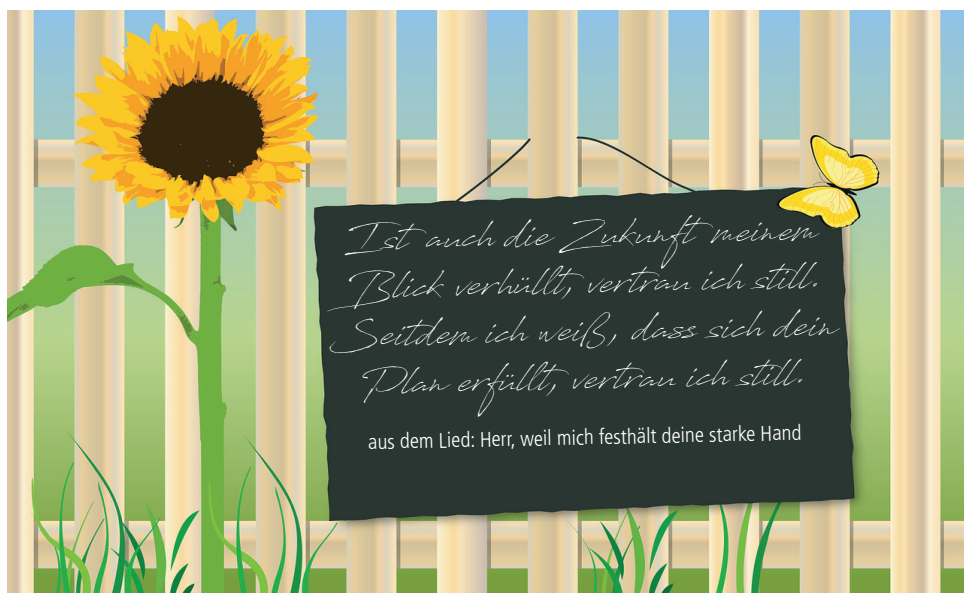 Ist auch die Zukunft meinem
Blick verhüllt, vertrau ich still.
Seitdem ich weiß, dass sich dein
Plan erfüllt, vertrau ich still.
aus dem Lied: Herr, weil mich festhält deine starke Hand